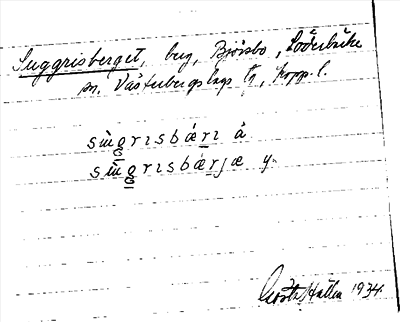 Suggrisberget, berg, Björsbo, Söderbärke
sn, Västerbergslags tg, Kopp. l.
sùg̲rɪsbárɪ å
sùg̲rɪsbárjæ y.
Gösta Hallén 1934.